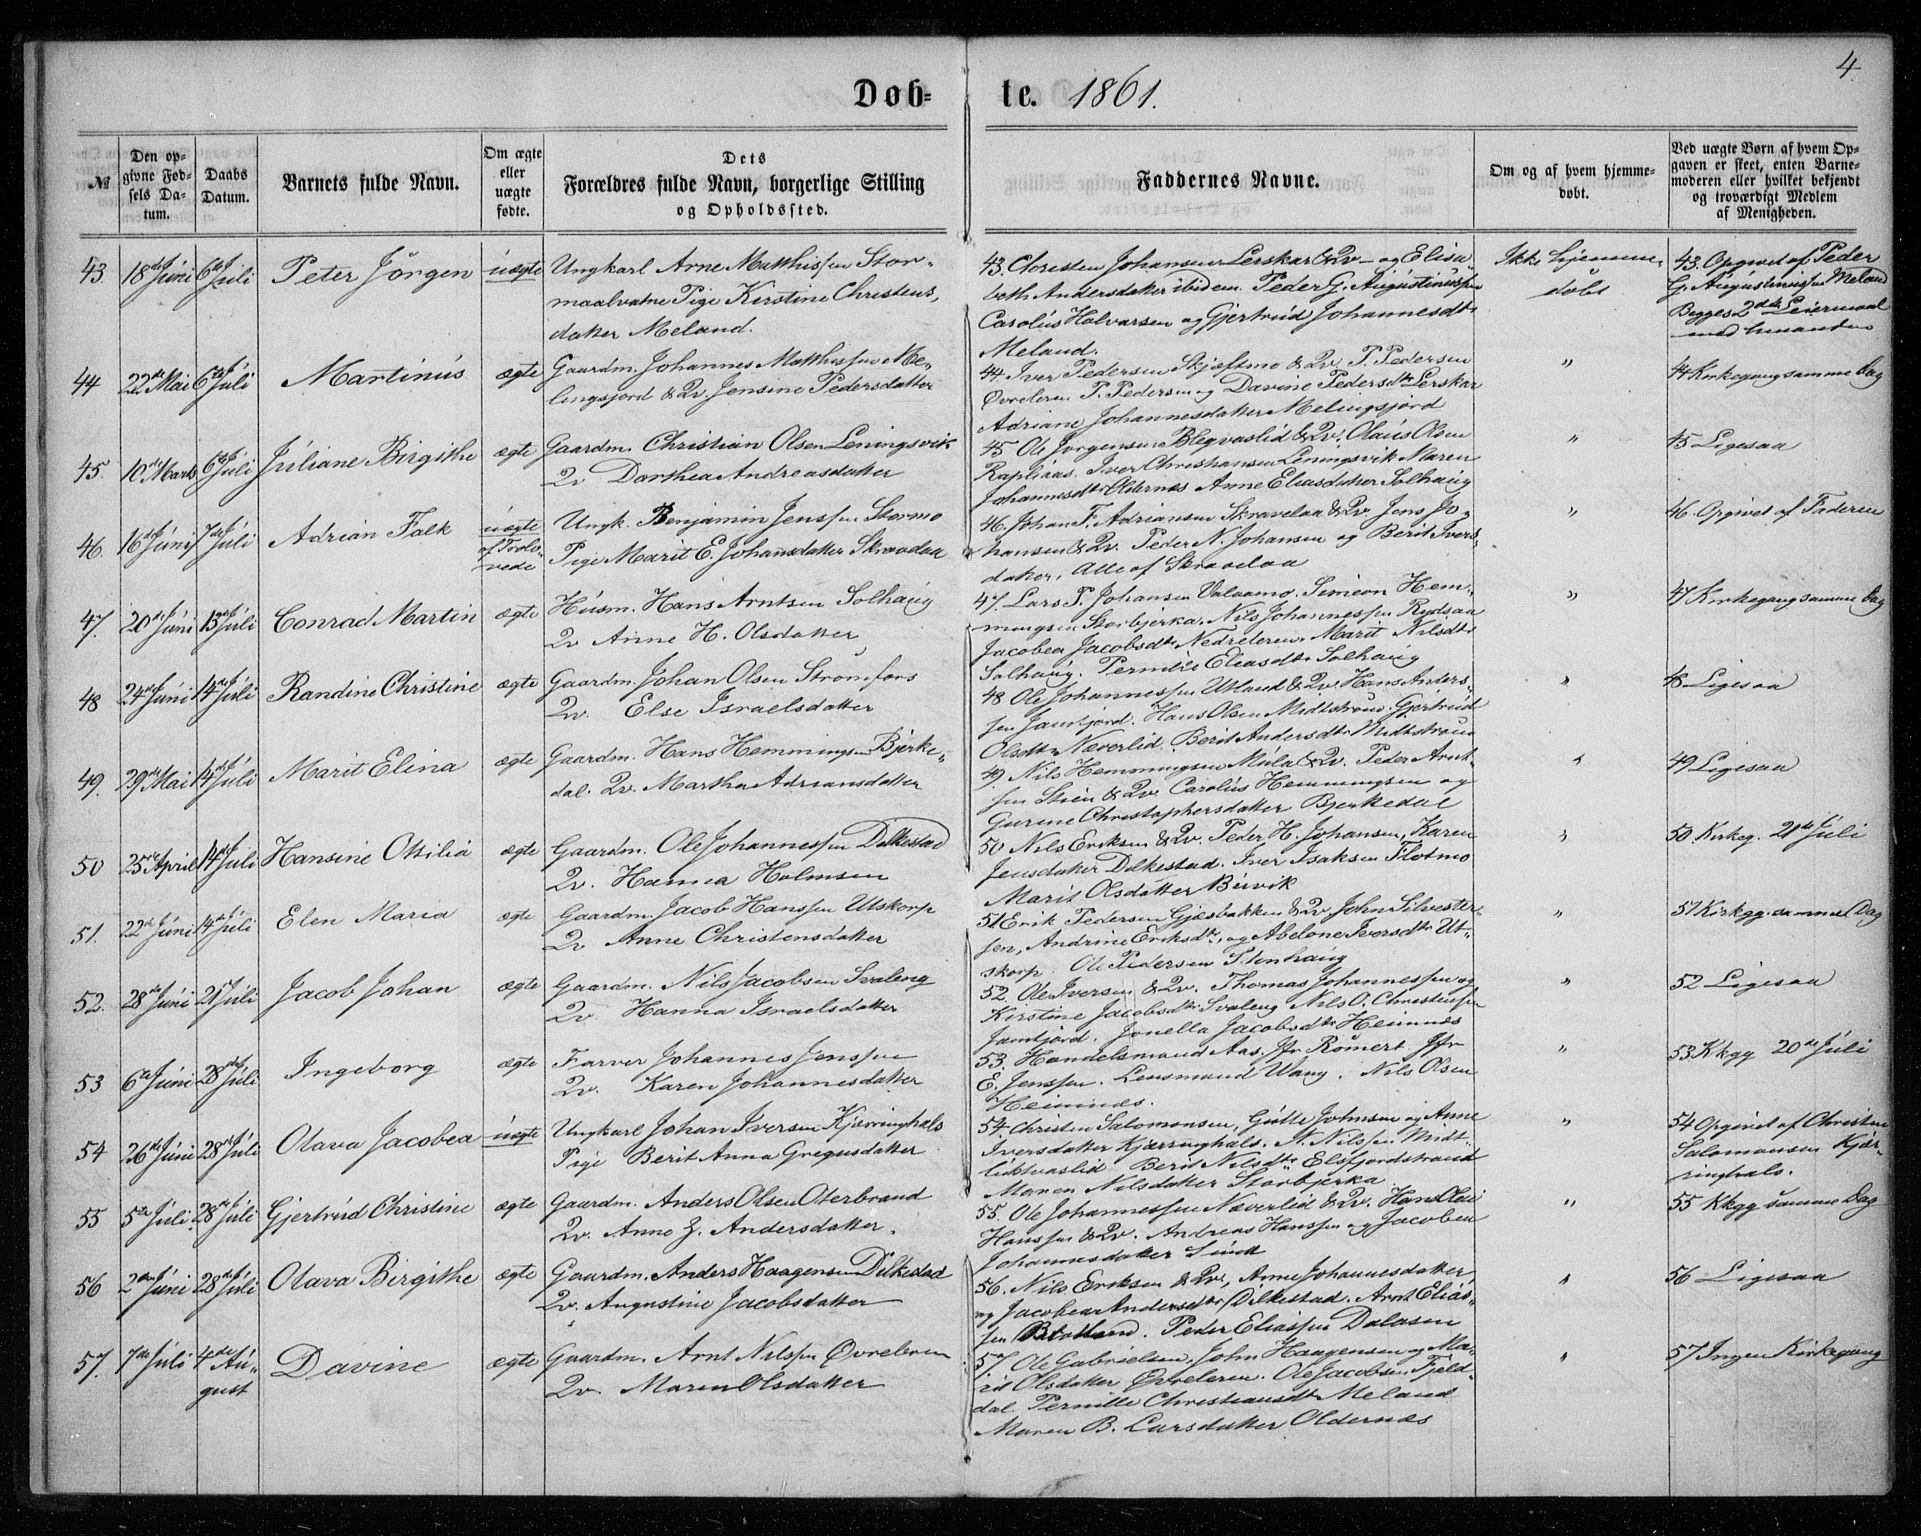 4
Døb-te. 1861.
№ | Den opgivne Fødsels Datum. | Daabs Datum. | Barnets fulde Navn. | Om ægte eller uægte fødte. | Dets Forældres fulde Navn, borgerlige Stilling og Opholdssted. | Faddernes Navne. | Om og af hvem hjemmedøbt. | Ved uægte Børn af hvem Opgaven er skeet, enten Barnemoderen eller hvilket bekjendt og troværdigt Medlem af Menigheden.
43. 18de Júni 6te Júli Peter Jörgen úægte
Ungkarl Arne Matthissen Stor-
maalvatne Pige Kirstine Christens-
datter Meland.
43. Christen Johansen Lerskar & Qv – og Elisa-
beth Andersdatter ibidem. Peder G. Aúgústinússen
Carolús Halvarsen og Gjertrúd Johannesdtr
Meland.
Ikke hjemme-
döbt
43. Opgivet af Peder
G. Aúgústinússen Meland
Begges 2det Leiermaal
med hinanden
44 22de Mai 6te Júli Martinús ægte
Gaardm. Johannes Matthissen Me-
lingsjord & Qv. Jensine Pedersdatter
44. Iver Pedersen Skjæftmo & Qv. P. Pedersen
Øvreleren P. Pedersen og Davine Pedersdtr Lerskar
Adriane Johannesdatter Melingsjord
"
44 Kirkegang samme Dag
45. 10de Marts 6te Júli Júliane Birgithe ægte
Gaardm. Christian Olsen Leningsvik
Qv Dorthea Andreasdatter
45 Ole Jörgensen Blegvaslid & Qv. Olaús Olsen
Rapliaas. Iver Christiansen Leningsvik Maren
Johannesdtr Oldernæs Anne Eliasdatter Solhaúg
"
45 Ligesaa
46. 16de Júni 7de Júli Adrian Falk úægte
af Trolo-
vede
Ungk. Benjamin Jenssen Stormo
Pige Marit E. Johansdatter Skravlaa
46. Johan F. Adriansen Skravelaa & Qv. Jens Jo-
hansen & Qv. Peder N. Johansen og Berit Ivers-
datter, Alle af Skravelaa
"
46. Opgivet af Faderen
47. 20de Júni 13de Júli Conrad Martin ægte
Húsm. Hans Arntsen Solhaúg
Qv Anne H. Olsdatter
47. Lars P. Johansen Valaamo. Simeon Hem-
mingsen Storbjerka. Nils Johannessen Rydsaa
Jacobea Jacobsdtr Nedreleren. Marit Nilsdtr
Solhaúg. Pernille Eliasdtr Solhaúg
"
47 Kirkegang samme Dag
48 24de Júni 14de Júli Randine Christine ægte
Gaardm. Johan Olsen Strömfors
Qv. Else Israelsdatter
48 Ole Johannessen Utland & Qv. Hans Anders-
sen Jamtjord. Hans Olsen Midtström. Gjertrúd
Olsdtr Næverlid. Berit Andersdtr Midtström
"
48 Ligesaa
49. 29de Mai 14de Júli Marit Elina ægte
Gaardm. Hans Hemmingsen Bjerke-
dal. Qv. Martha Adriansdatter
49. Nils Hemmingsen Múla & Qv. Peder Arnt-
sen Stien & Qv. Carolús Hemmingsen og
Gurine Christophersdatter Bjerkedal
"
49 Ligesaa
50 25de April 14de Júli Hansine Otsilia ægte
Gaardm. Ole Johannessen Dilkestad
Qv. Hanna Holmsen
50 Nils Eriksen & Qv. Peder H. Johansen, Karen
Jensdatter Dilkestad. Iver Isaksen Flotmo
Marit Olsdatter Bervik
"
50. Kirkeg. 21de Júli
51. 22de Júni 14de Júli Elen Maria ægte
Gaardm. Jacob Hanssen Utskorp
Qv Anne Christensdatter
51 Erik Pedersen Gjæsbakken & Qv John Silvester-
sen, Andrine Eriksdtr, og Abelone Iversdtr Ut-
skorp. Ole Pedersen Stenhaúg
"
51 Kirkgg. samme Dag
52. 28de Júni 21de Júli Jacob Johan ægte
Gaardm. Nils Jacobsen Svaleng
Qv. Hanna Israelsdatter
52. Ole Iversen & Qv. Thomas Johannessen og
Kirstine Jacobsdtr Svaleng Nils O. Christensen
Jamtjord. Jonella Jacobsdtr Heimnes
"
52 Ligesaa
53 6te Júni 28de Júli Ingeborg ægte
Farver Johannes Jenssen
Qv. Karen Johannesdatter
53. Handelsmand Aas, Jfr Römert. Jfr
E. Jenssen. Lensmand Wang. Nils Olsen
Heimnes.
"
53 Kkgg 20de Júli
54 26de Júni 28de Júli Olava Jacobea úægte
Ungkarl Johan Iversen Kjærringhals
Pige Berit Anna Gregusdatter
54 Christen Salomonsen, Gútte Johnsen og Anne
Iversdatter Kjæringhals. N. Nilssen Midt-
liktvaslid Berit Nilsdtr Elsfjordstrand
Maren Nilsdatter Storbjerka
"
54 Opgivet af Christen
Salomonsen Kjær-
ringhals.
55 5te Júli 28de Júli Gjertrúd Christine ægte
Gaardm. Anders Olsen Oterbrand
Qv. Anne Z. Andersdatter.
55 Ole Johannessen Næverlid & Qv. Hans Olai
Hanssen & Qv. Andreas Hanssen og Jacobea
Johannesdatter Sund
"
55 Kkgg samme Dag
56 2den Júni 28de Júli Olava Birgithe ægte
Gaardm. Anders Haagensen Dilkestad
Qv. Augustine Jacobsdatter
56. Nils Eriksen & Qv, Anne Johannesdatter,
og Jacobea Andersdtr Dilkestad. Arnt Elias-
sen Brattland. Peder Eliassen Dalosen
"
56 Ligesaa
57. 7de Júli 4de Aú-
gust Davine ægte
Gaardm. Arnt Nilssen Øvreleren
Qv. Maren Olsdatter
57 Ole Gabrielsen, John Haagensen og Ma-
rit Olsdatter Øvreleren. Ole Jacobsen Fjeld-
dal. Pernille Christiansdtr Meland
Maren B. Larsdatter Oldernæs
"
57 Ingen Kirkegang